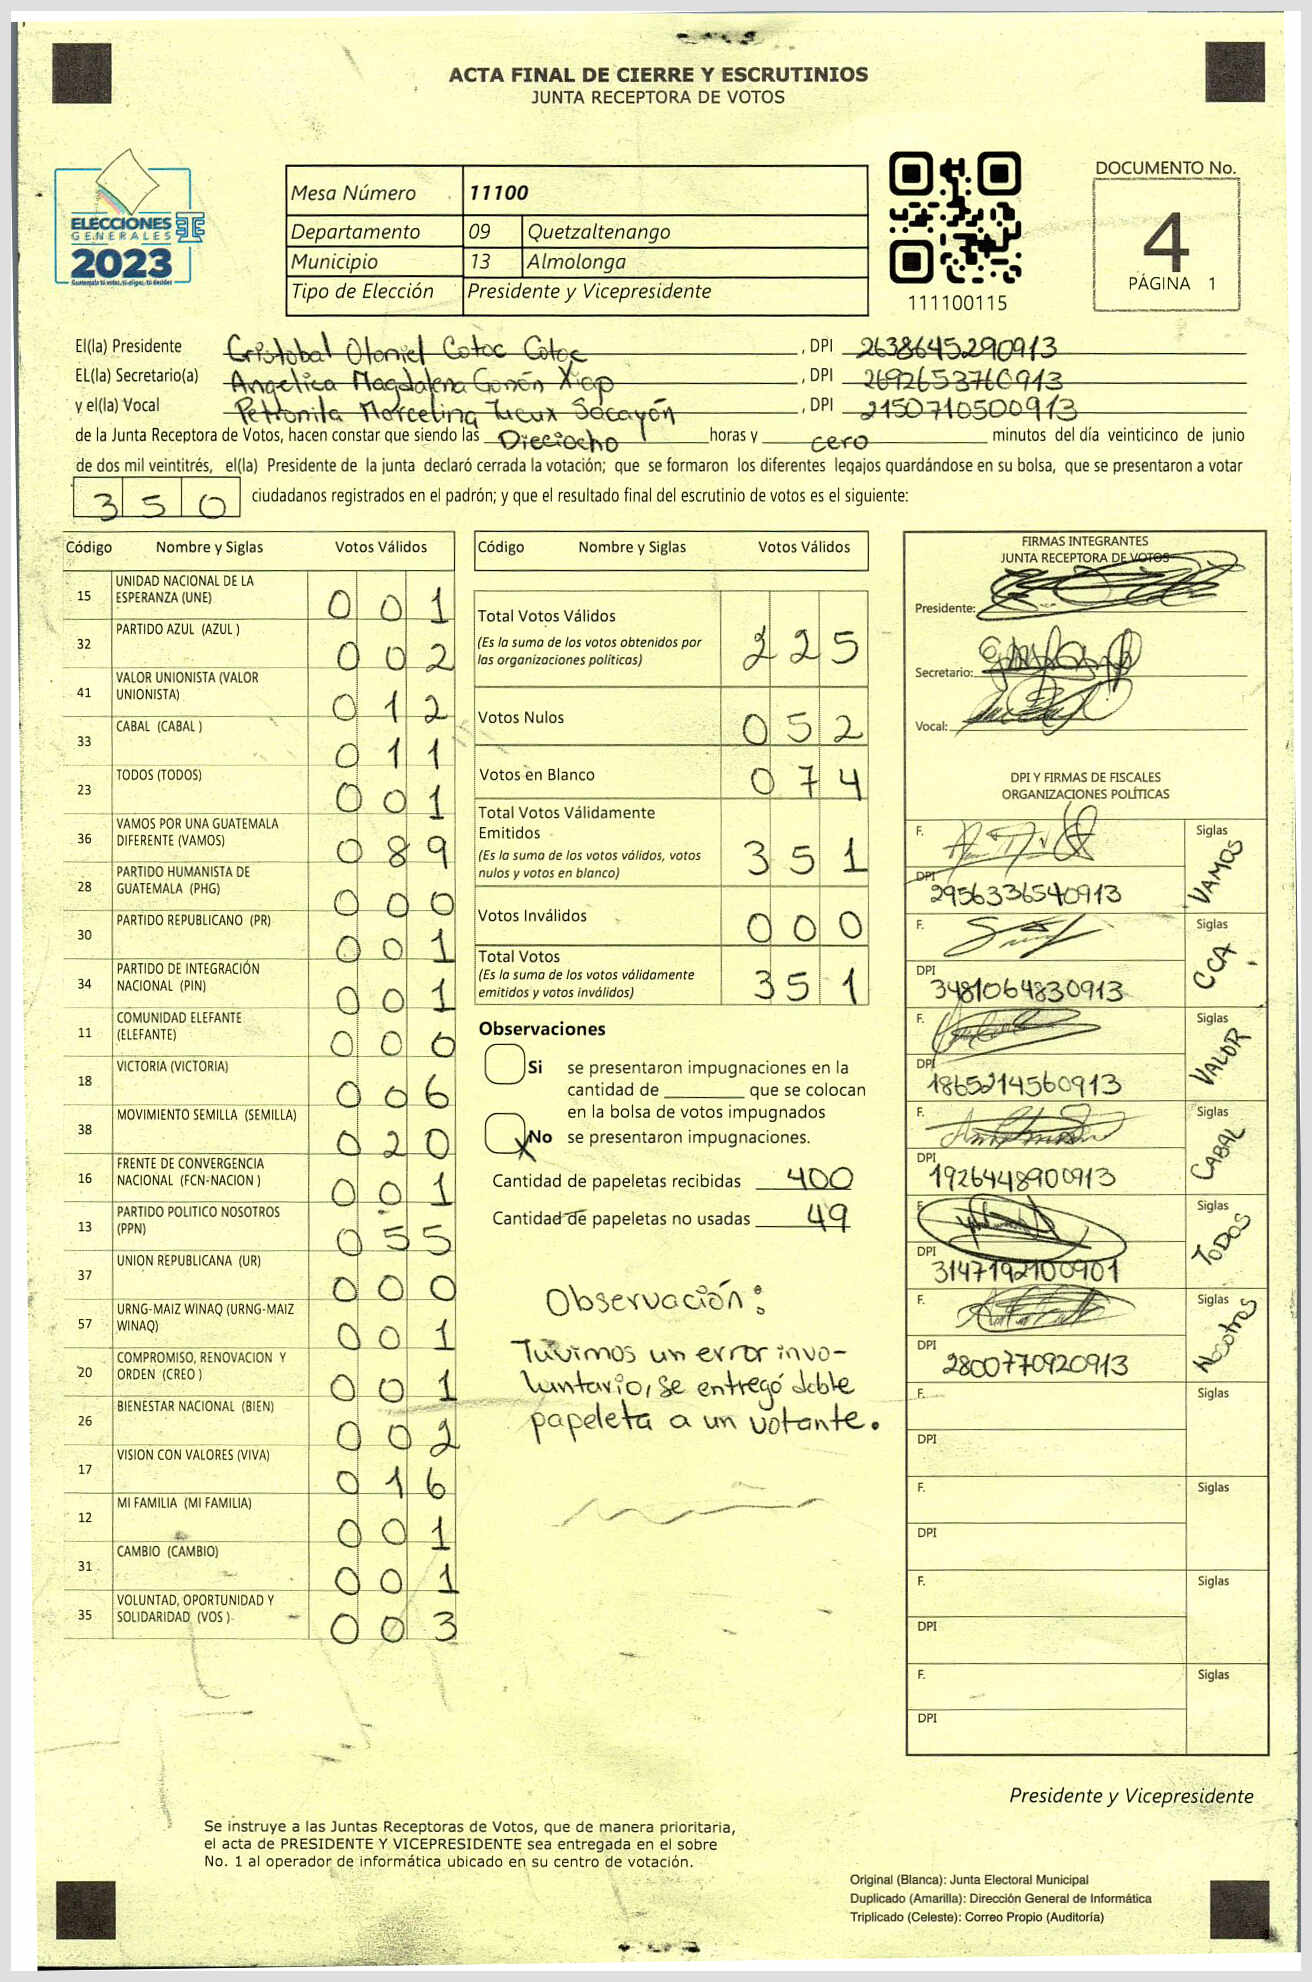 ACTA FINAL DE CIERRE Y ESCRUTINIOS
JUNTA RECEPTORA DE VOTOS
ELECCIONES
GENERALES
2023
Guatemala tú votas, tú eliges, tú decides
Mesa Número 11100
Departamento 09 Quetzaltenango
Municipio 13 Almolonga
Tipo de Elección Presidente y Vicepresidente
111100115
DOCUMENTO No.
4
PÁGINA 1
El(la) Presidente Cristobal Otoniel Cotoc Cotoc , DPI 2638645290913
EL(la) Secretario(a) Angelica Magdalena Gonón Xiap , DPI 2692653760913
y el(la) Vocal Petronila Marcelina Tucux Sacayón , DPI 2150710500913
de la Junta Receptora de Votos, hacen constar que siendo las Dieciocho horas y cero minutos del día veinticinco de junio
de dos mil veintitrés, el(la) Presidente de la junta declaró cerrada la votación; que se formaron los diferentes legajos guardándose en su bolsa, que se presentaron a votar
350 ciudadanos registrados en el padrón; y que el resultado final del escrutinio de votos es el siguiente:
Código Nombre y Siglas Votos Válidos
15 UNIDAD NACIONAL DE LA
ESPERANZA (UNE) 001
32 PARTIDO AZUL (AZUL ) 002
41 VALOR UNIONISTA (VALOR
UNIONISTA) 012
33 CABAL (CABAL ) 011
23 TODOS (TODOS) 001
36 VAMOS POR UNA GUATEMALA
DIFERENTE (VAMOS) 089
28 PARTIDO HUMANISTA DE
GUATEMALA (PHG) 000
30 PARTIDO REPUBLICANO (PR) 001
34 PARTIDO DE INTEGRACIÓN
NACIONAL (PIN) 001
11 COMUNIDAD ELEFANTE
(ELEFANTE) 000
18 VICTORIA (VICTORIA) 006
38 MOVIMIENTO SEMILLA (SEMILLA) 020
16 FRENTE DE CONVERGENCIA
NACIONAL (FCN-NACION ) 001
13 PARTIDO POLITICO NOSOTROS
(PPN) 055
37 UNION REPUBLICANA (UR) 000
57 URNG-MAIZ WINAQ (URNG-MAIZ
WINAQ) 001
20 COMPROMISO, RENOVACION Y
ORDEN (CREO ) 001
26 BIENESTAR NACIONAL (BIEN) 002
17 VISION CON VALORES (VIVA) 016
12 MI FAMILIA (MI FAMILIA) 001
31 CAMBIO (CAMBIO) 001
35 VOLUNTAD, OPORTUNIDAD Y
SOLIDARIDAD (VOS ) 003
Código Nombre y Siglas Votos Válidos
Total Votos Válidos
(Es la suma de los votos obtenidos por
las organizaciones políticas) 225
Votos Nulos 052
Votos en Blanco 074
Total Votos Válidamente
Emitidos
(Es la suma de los votos válidos, votos
nulos y votos en blanco) 351
Votos Inválidos 000
Total Votos
(Es la suma de los votos válidamente
emitidos y votos inválidos) 351
Observaciones
Si se presentaron impugnaciones en la
cantidad de ________ que se colocan
en la bolsa de votos impugnados
X No se presentaron impugnaciones.
Cantidad de papeletas recibidas 400
Cantidad de papeletas no usadas 49
Observación:
Tuvimos un error invo-
luntario, se entregó doble
papeleta a un votante.
FIRMAS INTEGRANTES
JUNTA RECEPTORA DE VOTOS
Presidente:
Secretario:
Vocal:
DPI Y FIRMAS DE FISCALES
ORGANIZACIONES POLÍTICAS
F. Siglas VAMOS
DPI 2956336540913
F. Siglas CCA
DPI 3481064830913
F. Siglas VALOR
DPI 1865214560913
F. Siglas CABAL
DPI 1926448900913
F. Siglas TODOS
DPI 3147192100901
F. Siglas Nosotros
DPI 2800770920913
F. Siglas
DPI
F. Siglas
DPI
F. Siglas
DPI
F. Siglas
DPI
Presidente y Vicepresidente
Se instruye a las Juntas Receptoras de Votos, que de manera prioritaria,
el acta de PRESIDENTE Y VICEPRESIDENTE sea entregada en el sobre
No. 1 al operador de informática ubicado en su centro de votación.
Original (Blanca): Junta Electoral Municipal
Duplicado (Amarilla): Dirección General de Informática
Triplicado (Celeste): Correo Propio (Auditoría)